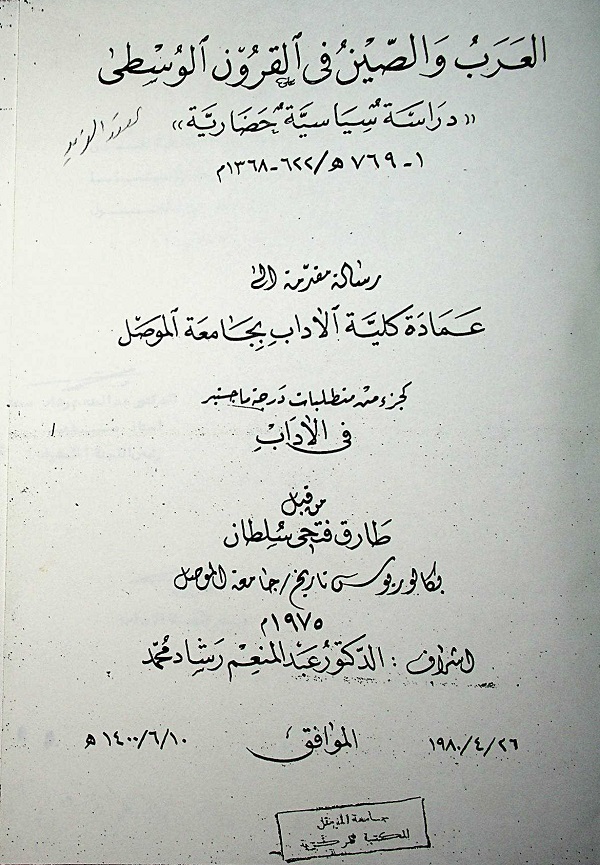 العَرَبُ وَالصِّيْنُ في القرُوْن الوُسْطىٰ
«دِرَاسَة سِيَاسيَّة حَضَاريَّة»
١ - ٧٦٩ هـ / ٦٢٢ - ١٣٦٨م
رسالة مقدّمة الى
عَمَادَة كليَّة الآدابِ بِجَامعَة الموَصْل
كجزء من متطلبات دَرجة ماجستير
في الآدَابْ
من قبل
طَارق فتحي سُلطان
بكالوريوس تاريخ / جامعة الموصل
١٩٧٥م
اشراف : الدّكتور عَبْد المنعِم رَشاد محمّد
١٩٨٠/٤/٢٦ الموافق ١٤٠٠/٦/١٠ هـ
جامعة
المكتبة المركزية